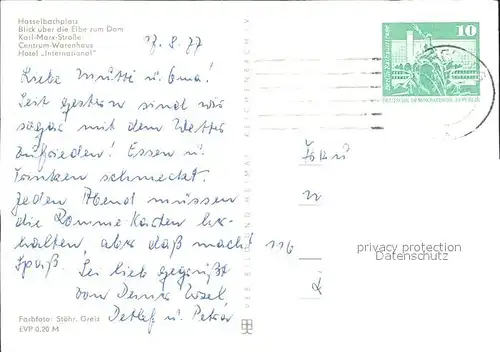 Hasselbachplatz
Blick über die Elbe zum Dom
Karl-Marx-Straße
Centrum-Warenhaus
Hotel „International"
17.8.77
Liebe Mutti u. Oma!
Seit gestern sind wir
sogar mit dem Wetter
zufrieden! Essen u.
Trinken schmecket.
Jeden Abend müssen
die Romme Karten her-
halten, aber daß macht
Spaß. Sei lieb gegrüßt
von Deiner
Detlef u. Petra
Farbfoto: Stöhr, Greiz
EVP 0,20 M
VEB BILD UND HEIMAT REICHENBACH V
10
DEUTSCHE DEMOKRATISCHE REPUBLIK
116
privacy protection
Datenschutz